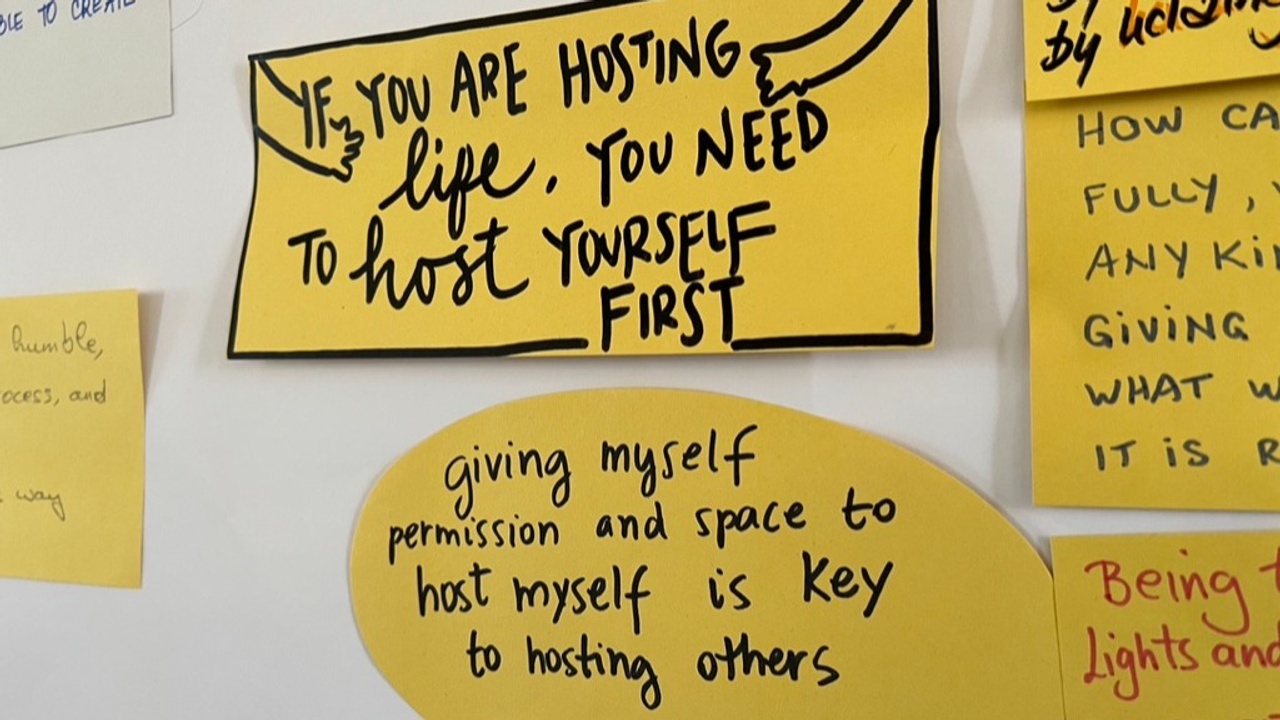 TO CREATE
IF YOU ARE HOSTING
life, YOU NEED
TO host YOURSELF
FIRST
giving myself
permission and space to
host myself is key
to hosting others
humble,
and
way
by
HOW
FULLY,
ANY
GIVING
WHAT
IT IS
Being
Lights and